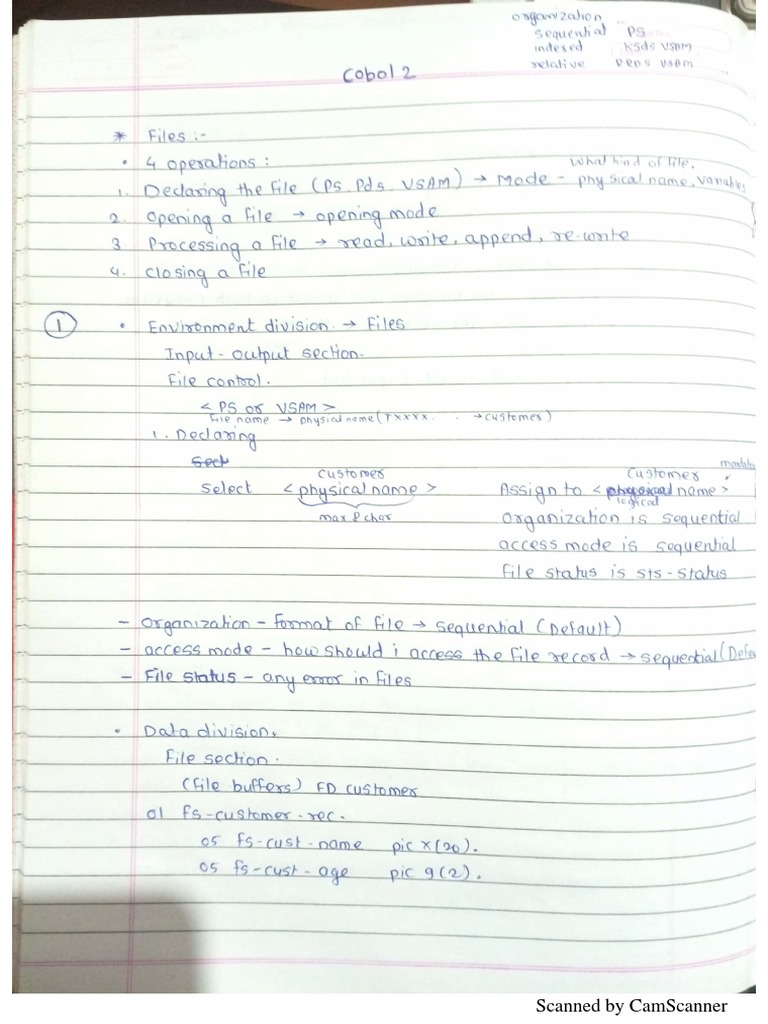 organization
sequential PS
indexed KSDS VSAM
relative RRDS VSAM
Cobol 2
* Files :-
• 4 operations :
What kind of file.
1. Declaring the file (PS, Pds, VSAM) → Mode - physical name, variables
2. opening a file → opening mode
3 Processing a file → read, write, append, re-write
4. closing a file
1 • Environment division → Files
Input-output section.
File control.
< PS or VSAM >
file name → physical name (TXXXX. . → customer)
1. Declaring
Sect
customer Customer
Select < physical name > Assign to < physical name >
logical
max 8 char organization is sequential
access mode is sequential
file status is sts-status
- organization - format of file → sequential (Default)
- access mode - how should i access the file record → sequential (Defa
- File status - any error in files
• Data division.
File section.
(file buffers) FD customer
01 fs-customer-rec.
05 fs-cust-name pic x(20).
05 fs-cust-age pic 9(2).
Scanned by CamScanner